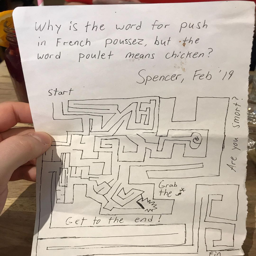 Why is the word for push
in French poussez, but the
word poulet means chicken?
Spencer, Feb '19
Start
Are you smort?
Grab
the
Get to the end!
Fin